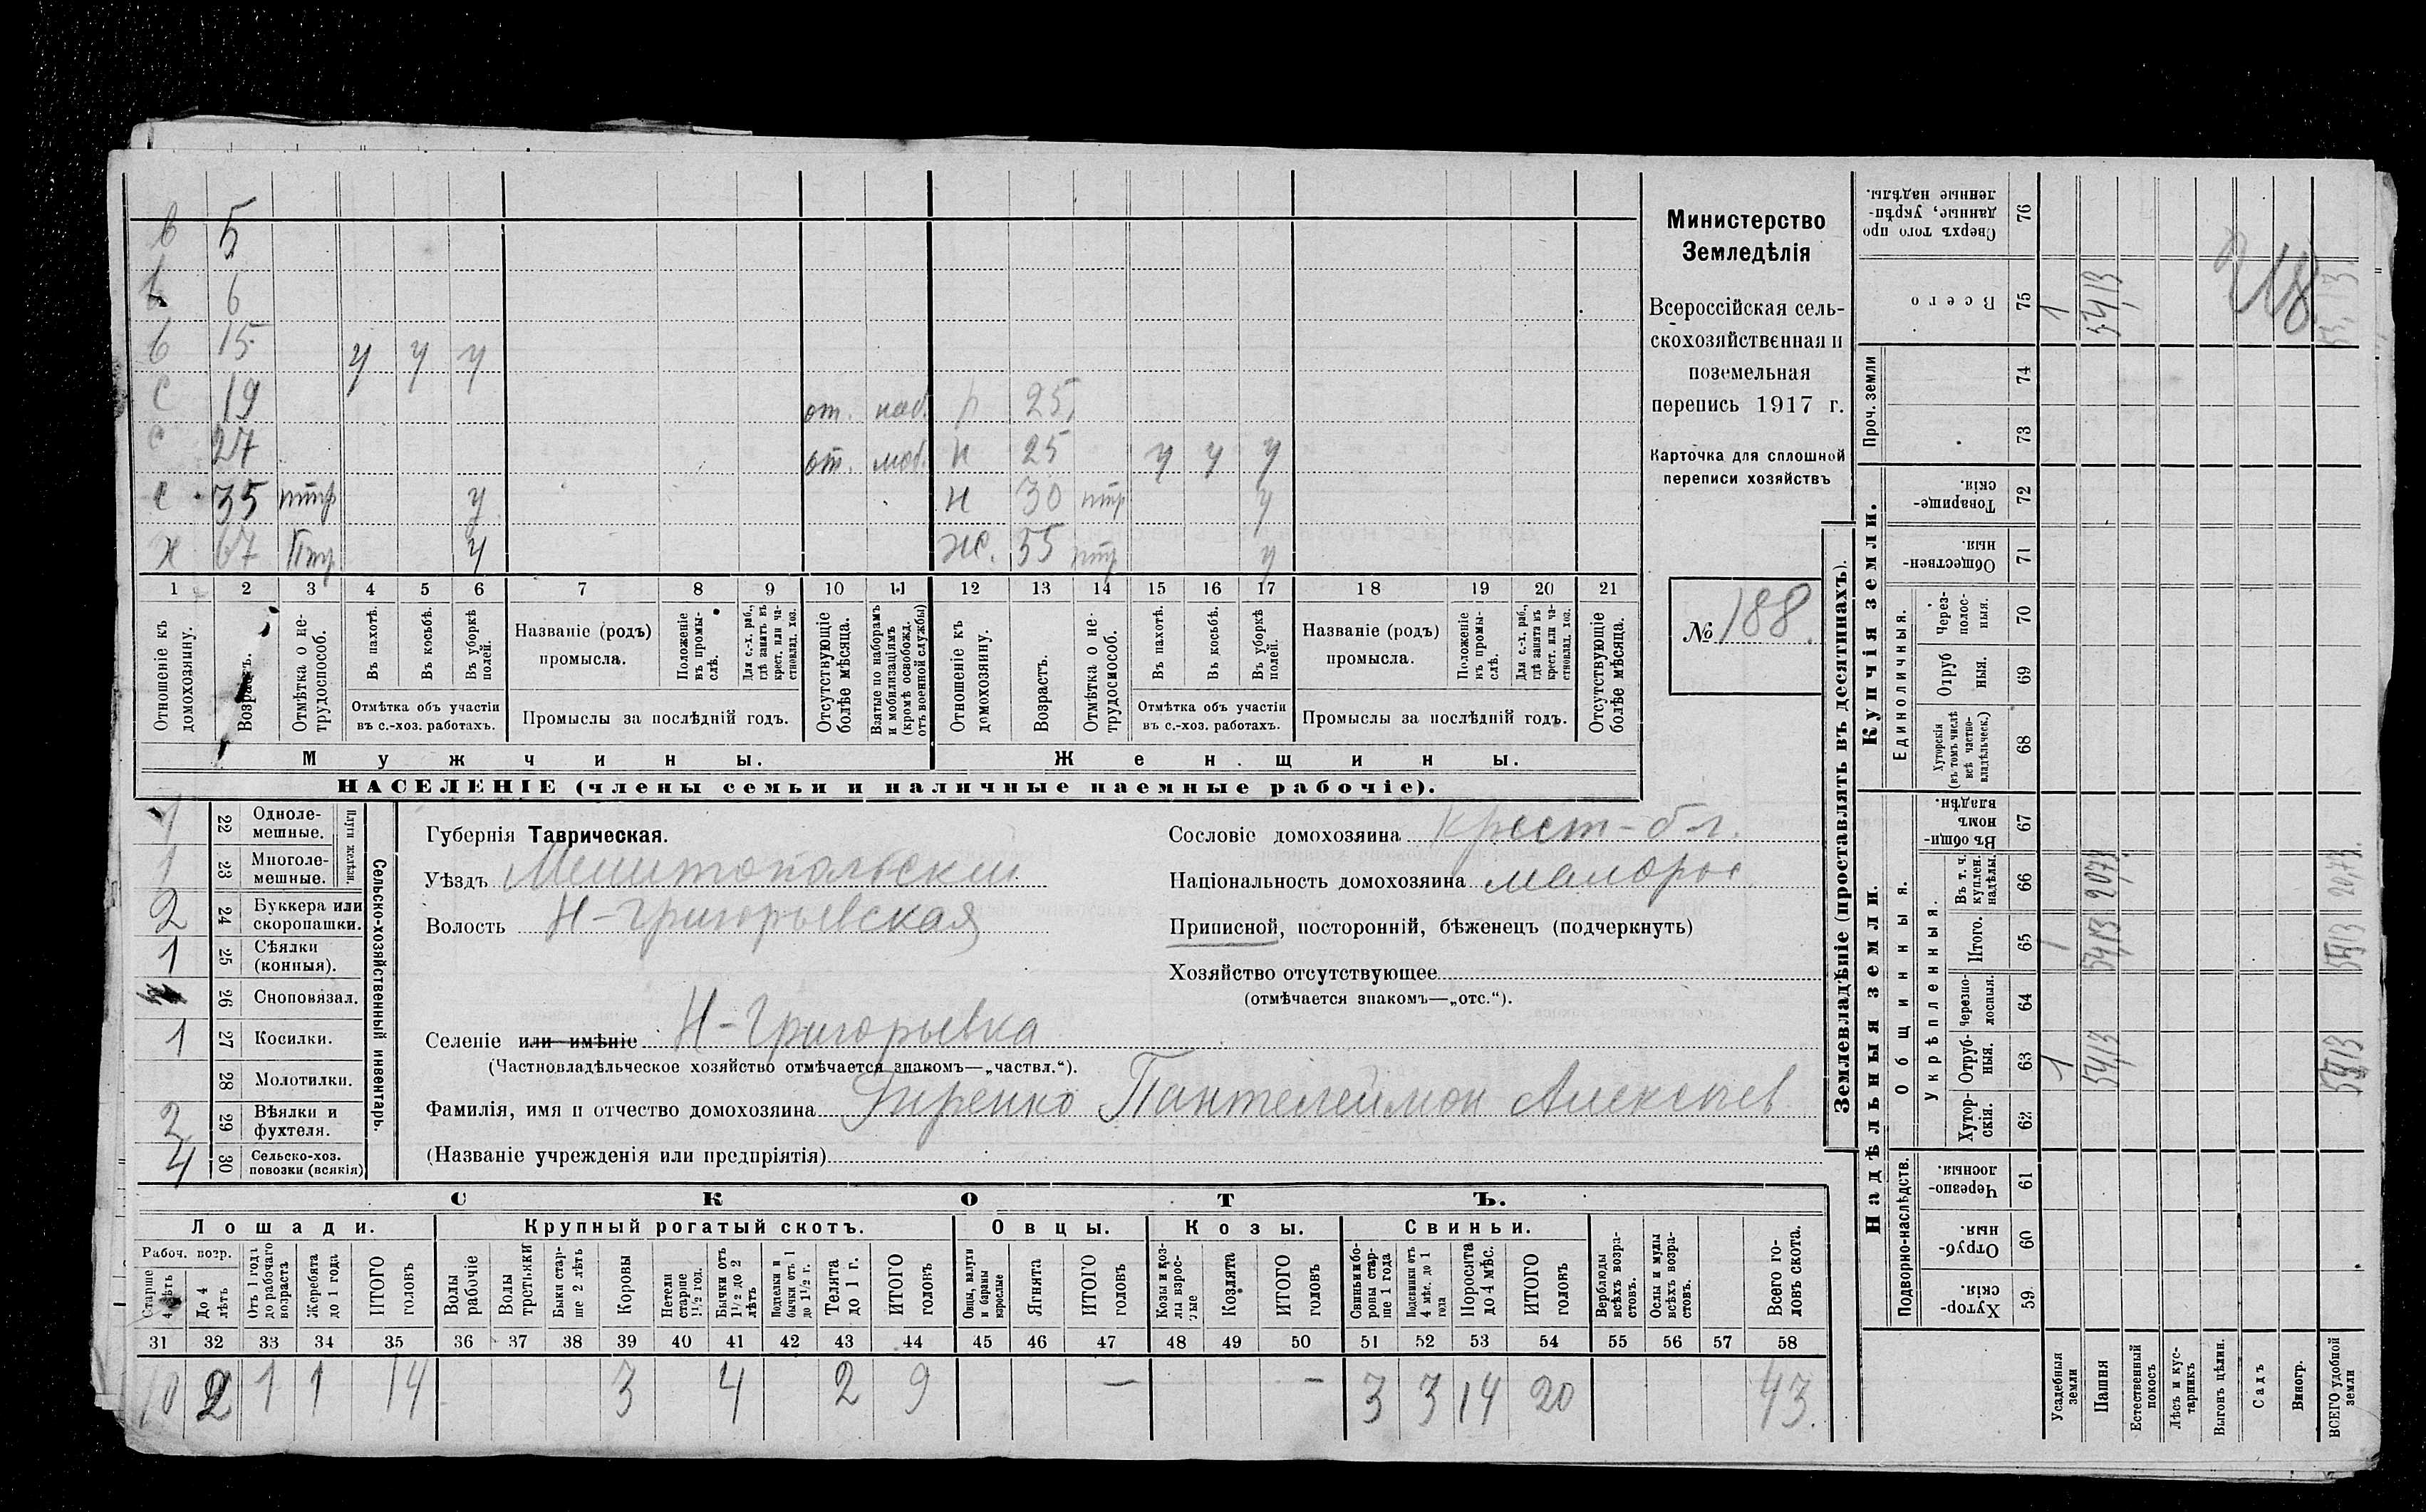 в 5
в 6
в 15 у у у
с 19 от. наб. р 25
с 27 от. моб. н 25 у у у
с 35 нтр у н 30 нтр у
х 67 Нтр у ж. 55 нтр у
1 2 3 4 5 6 7 8 9 10 11 12 13 14 15 16 17 18 19 20 21
Отношеніе къ домохозяину.
Возрастъ.
Отмѣтка о не-
трудоспособ.
Въ пахотѣ.
Въ косьбѣ.
Въ уборкѣ полей.
Отмѣтка объ участіи
въ с.-хоз. работахъ.
Названіе (родъ)
промысла.
Положеніе въ промы-
слѣ.
Для с.-х. раб., гдѣ занятъ въ крест. или ча-
стновлад. хоз.
Промыслы за послѣдній годъ.
Отсутствующіе болѣе мѣсяца.
Взятые по наборамъ и мобилизаціямъ (кромѣ освобожд. отъ военной службы)
Отношеніе къ домохозяину.
Возрастъ.
Отмѣтка о не-
трудоспособ.
Въ пахотѣ.
Въ косьбѣ.
Въ уборкѣ полей.
Отмѣтка объ участіи
въ с.-хоз. работахъ.
Названіе (родъ)
промысла.
Положеніе въ промы-
слѣ.
Для с.-х. раб., гдѣ занята въ крест. или ча-
стновлад. хоз.
Промыслы за послѣдній годъ.
Отсутствующіе болѣе мѣсяца.
Мужчины.
Женщины.
НАСЕЛЕНІЕ (члены семьи и наличные наемные рабочіе).
Министерство
Земледѣлія
Всероссійская сель-
скохозяйственная и
поземельная
перепись 1917 г.
Карточка для сплошной
переписи хозяйствъ
№ 188.
1 22 Одноле-
мешные.
1 23 Многоле-
мешные.
Плуги желѣзн.
2 24 Буккера или
скоропашки.
1 25 Сѣялки
(конныя).
26 Сноповязал.
1 27 Косилки.
28 Молотилки.
2 29 Вѣялки и
фухтеля.
4 30 Сельско-хоз.
повозки (всякія)
Сельско-хозяйственный инвентарь.
Губернія Таврическая.
Уѣздъ Мелитопольскій
Волость Н-Григорьевская
Селеніе или имѣніе Н-Григорьевка
(Частновладѣльческое хозяйство отмѣчается знакомъ—„частвл.“).
Фамилія, имя и отчество домохозяина Гиренко Пантелеймон Алексѣев
(Названіе учрежденія или предпріятія)
Сословіе домохозяина крест-б-г.
Національность домохозяина малорос.
Приписной, посторонній, бѣженецъ (подчеркнуть)
Хозяйство отсутствующее
(отмѣчается знакомъ—„отс.“).
СКОТЪ.
Лошади. Крупный рогатый скотъ. Овцы. Козы. Свиньи.
Рабоч. возр.
Старше 4 лѣтъ
До 4 лѣтъ
Отъ 1 года до рабочаго возраста
Жеребята до 1 года
ИТОГО головъ
Волы рабочіе
Волы третьяки
Быки стар-
ше 2 лѣтъ
Коровы
Нетели старше 1½ год.
Бычки отъ 1½ до 2 лѣтъ
Подтелки и бычки отъ 1 до 1½ г.
Телята до 1 г.
ИТОГО головъ
Овцы, валухи и бараны взрослые
Ягнята
ИТОГО головъ
Козы и коз-
лы взрос-
лые
Козлята
ИТОГО головъ
Свиньи и бо-
ровы стар-
ше 1 года
Подсвинки отъ 4 мѣс. до 1 года
Поросята до 4 мѣс.
ИТОГО головъ
Верблюды всѣхъ возра-
стовъ.
Ослы и мулы всѣхъ возра-
стовъ.
Всего го-
ловъ скота.
31 32 33 34 35 36 37 38 39 40 41 42 43 44 45 46 47 48 49 50 51 52 53 54 55 56 57 58
10 2 1 1 14 3 4 2 9 — — 3 3 14 20 43.
Землевладѣніе (проставлять въ десятинахъ).
Надѣльныя земли.
Купчія земли.
Проч. земли
Подворно-наслѣдств.
Общинныя.
Укрѣпленныя.
Единоличныя.
Сверхъ того про
даные, укрѣп-
ленные надѣлы.
76
Всего 75 1 54,13 55,13
74
73
Товарище-
скія. 72
Обществен-
ныя. 71
Через-
полос-
ныя. 70
Отруб
ныя. 69
Хуторскія
(въ томъ числѣ
всѣ частно-
владѣльческ.) 68
Въ общин-
номъ
владѣн. 67
Въ т. ч.
куплен.
надѣлы. 66 20,73 20,73
Итого. 65 1 54,13 55,13
Черезпо-
лосныя. 64
Отруб-
ныя. 63 1 54,13 55,13
Хутор-
скія. 62
Черезпо-
лосныя. 61
Отруб-
ныя. 60
Хутор-
скія. 59
Усадебныя земли
Пашня
Естественный покосъ
Лѣсъ и кус-
тарникъ
Выгонъ цѣлин.
Садъ
Виногр.
ВСЕГО удобной земли
218